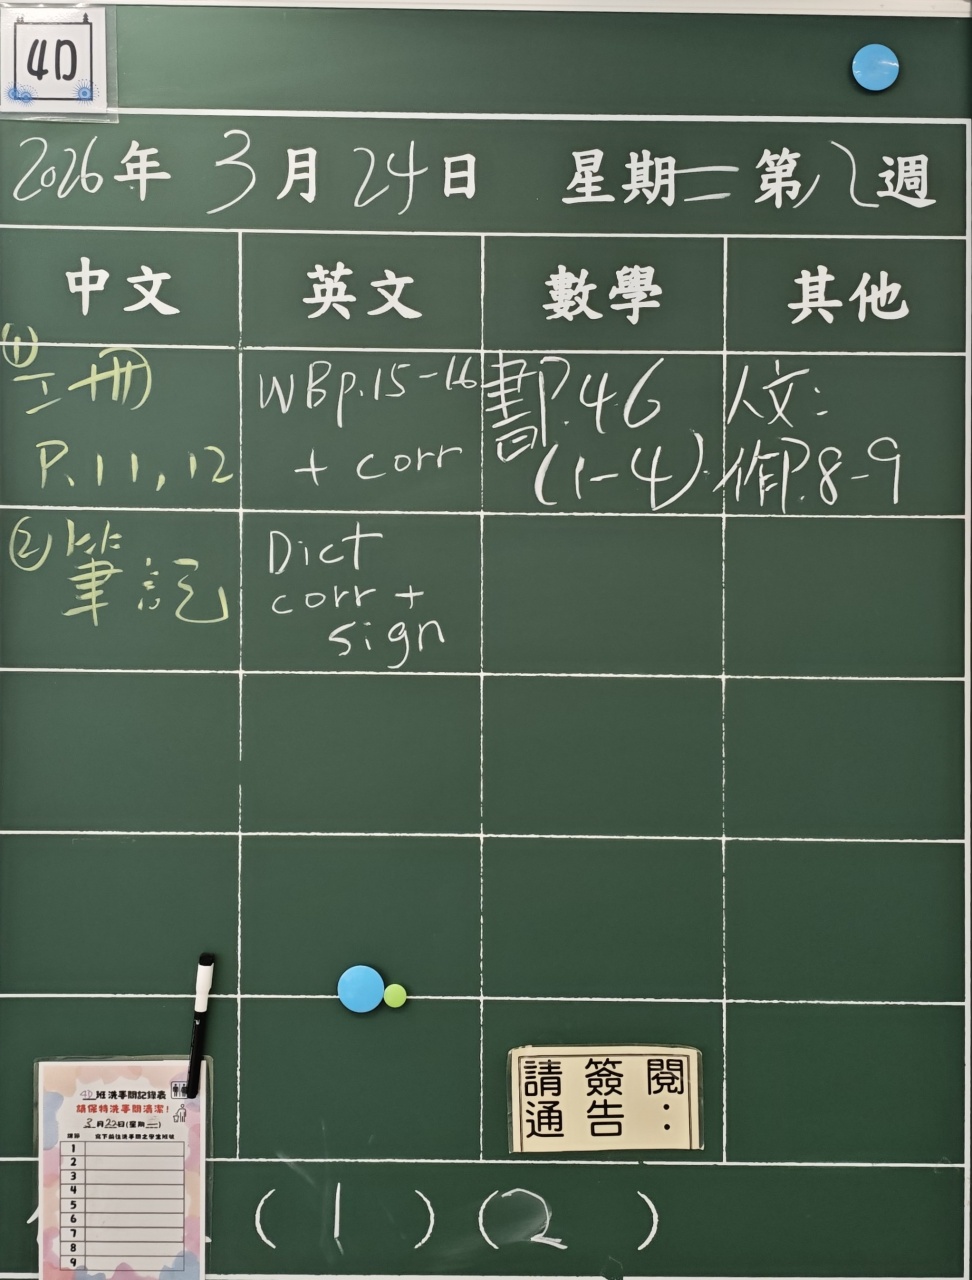 4D
2026年 3月 24日 星期二 第12週
中文 英文 數學 其他
① 二冊
P.11, 12
WBp.15-16
+ corr
書P.46
(1-4)
人文:
作P.8-9
② 筆記
Dict
corr +
sign
4D 班洗手間記錄表
請保持洗手間清潔!
3月22日(星期二)
1
2
3
4
5
6
7
8
9
請簽閱
通告:
(1) (2)